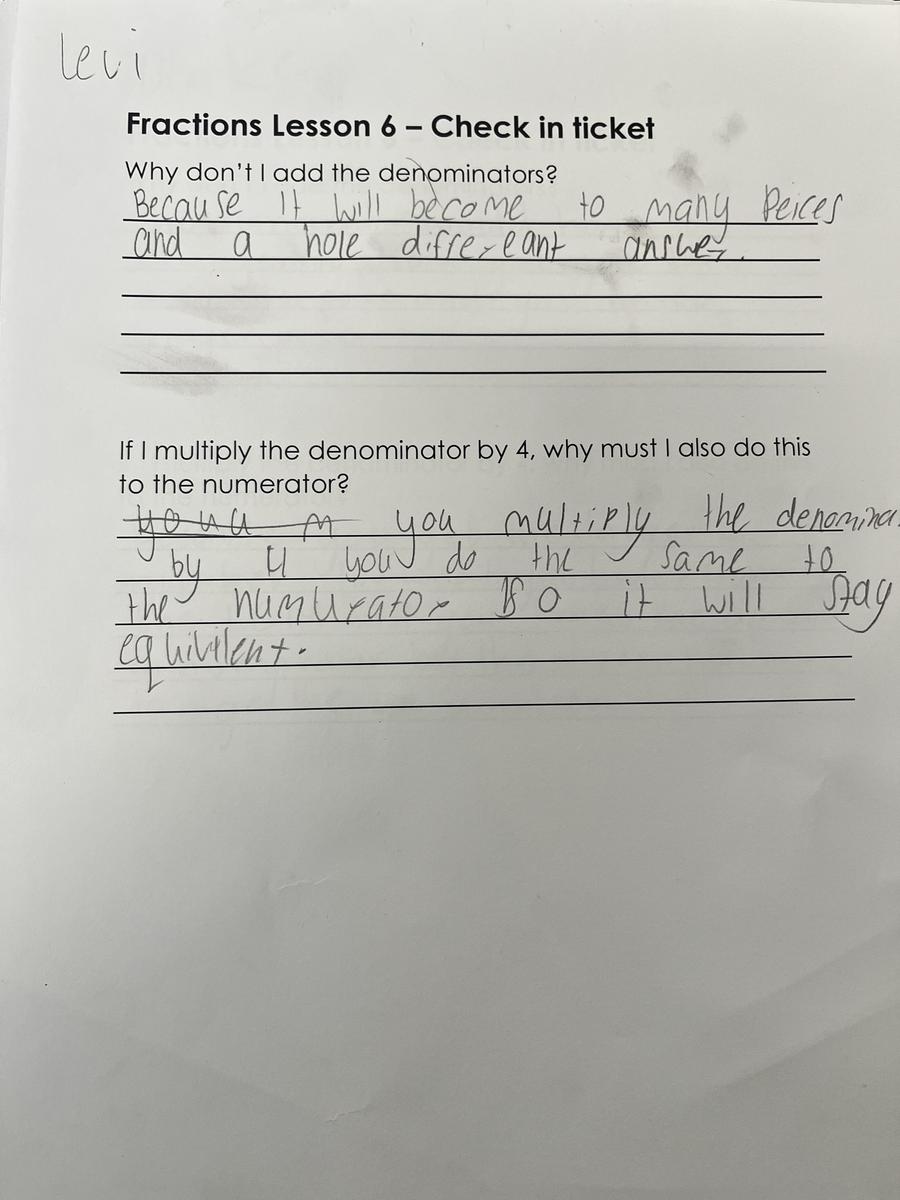 Levi
Fractions Lesson 6 – Check in ticket
Why don't I add the denominators?
Because It will become to many Peices
and a hole differeant answer.
If I multiply the denominator by 4, why must I also do this
to the numerator?
you multiply the denomina
by 4 you do the same to
the numurator so it will stay
equivilent.